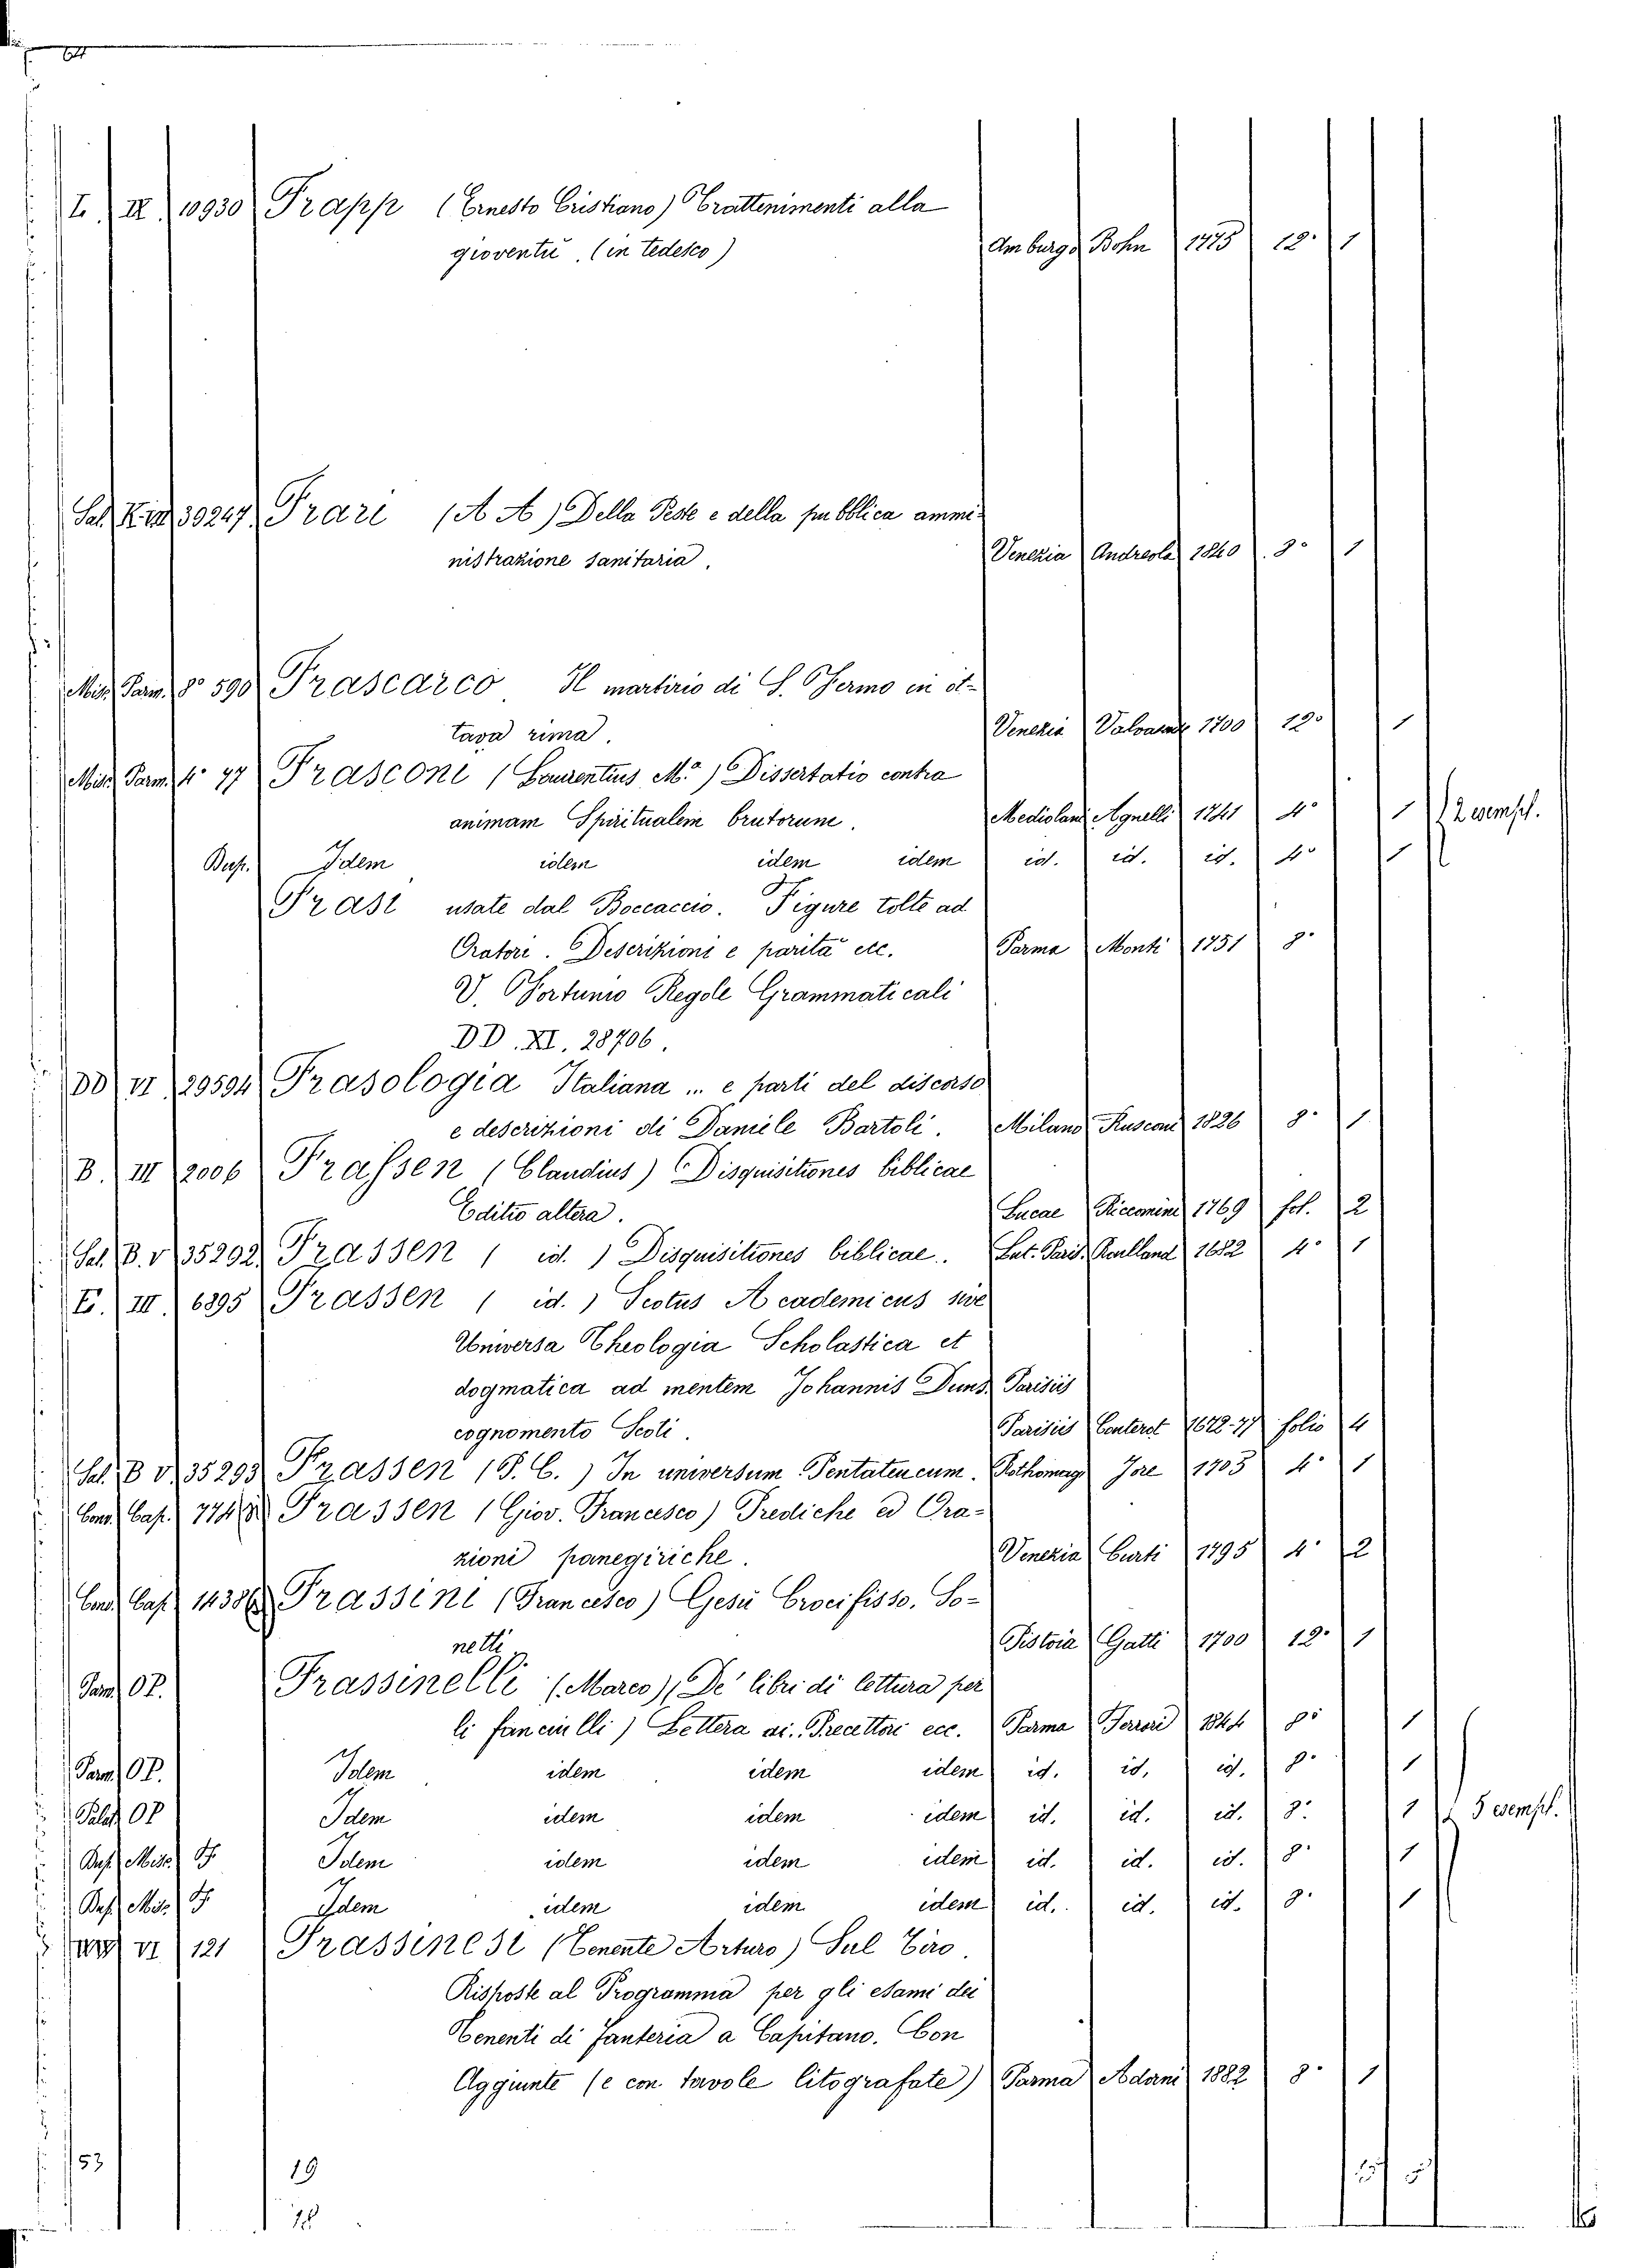 64
I. IX. 10930 Frapp (Ernesto Cristiano) Trattenimenti alla
gioventù. (in tedesco) Amburgo Bohn 1775 12° 1
Sal. K.IX 39247 Frari (A A) Della Peste e della pubblica ammi-
nistrazione sanitaria. Venezia Andreola 1840 8° 1
Misc. Parm. 8° 590 Frascarco Il martirio di S. Fermo in ot-
tava rima. Venezia 1700 12° 1
Misc. Parm. 4° 77 Frasconi (Laurentius M.ª) Dissertatio contra
animam Spiritualem brutorum. Mediolani Agnelli 1741 4° 1 2 esempl.
Bup. Idem idem idem idem id. id. id. 4° 1
Frasi usate dal Boccaccio. Figure tolte ad
Oratori. Descrizioni e parità etc. Parma Monti 1751 8°
V. Fortunio Regole Grammaticali
DD. XI. 28706.
DD VI 29594 Frasologia Italiana ... e parti del discorso
e descrizioni di Daniele Bartoli. Milano Rusconi 1826 8° 1
B. III 2006 Frassen (Claudius) Disquisitiones biblicae
Editio altera. Lucae Riccomini 1769 fol. 2
Sal. B. V 35292 Frassen ( id. ) Disquisitiones biblicae. Lut. Paris. Roulland 1682 4° 1
E. III 6895 Frassen ( id. ) Scotus Academicus sive
Universa Theologia Scholastica et
dogmatica ad mentem Johannis Duns Parisiis
cognomento Scoti. Parisiis Couterot 1672-77 folio 4
Sal. B V. 35293 Frassen (P. C.) In universum Pentateucum. Rothomag Jore 1705 4° 1
Conv. Cap. 774 Frassen (Giov. Francesco) Prediche ed Ora-
zioni panegiriche. Venezia Curti 1795 4° 2
Conv. Cap. 1438 Frassini (Francesco) Gesù Crocifisso. So-
netti Pistoia Gatti 1700 12° 1
Parm. OP. Frassinelli (Marco), De' libri di lettura per
li fanciulli) Lettera ai Precettori ecc. Parma Ferrari 1844 8° 1
Parm. OP. Idem idem idem idem id. id. id. 8° 1
Palat. OP Idem idem idem idem id. id. id. 8° 1 5 esempl.
Bup. Misc. Idem idem idem idem id. id. id. 8° 1
Bup. Misc. Idem idem idem idem id. id. id. 8° 1
VI 121 Frassinesi (Tenente Arturo) Sul Tiro.
Risposte al Programma per gli esami dei
Tenenti di fanteria a Capitano. Con
Aggiunte (e con tavole litografate) Parma Adorni 1882 8° 1
153 19
18